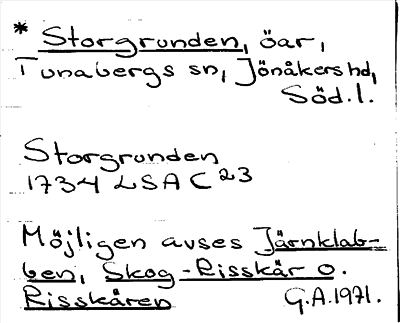 * Storgrunden, öar,
Tunabergs sn, Jönåkers hd,
Söd. l.
Storgrunden
1734 LSA C 23
Möjligen avses Järnklab-
ben, Skog-Risskär o.
Risskären G.A. 1971.